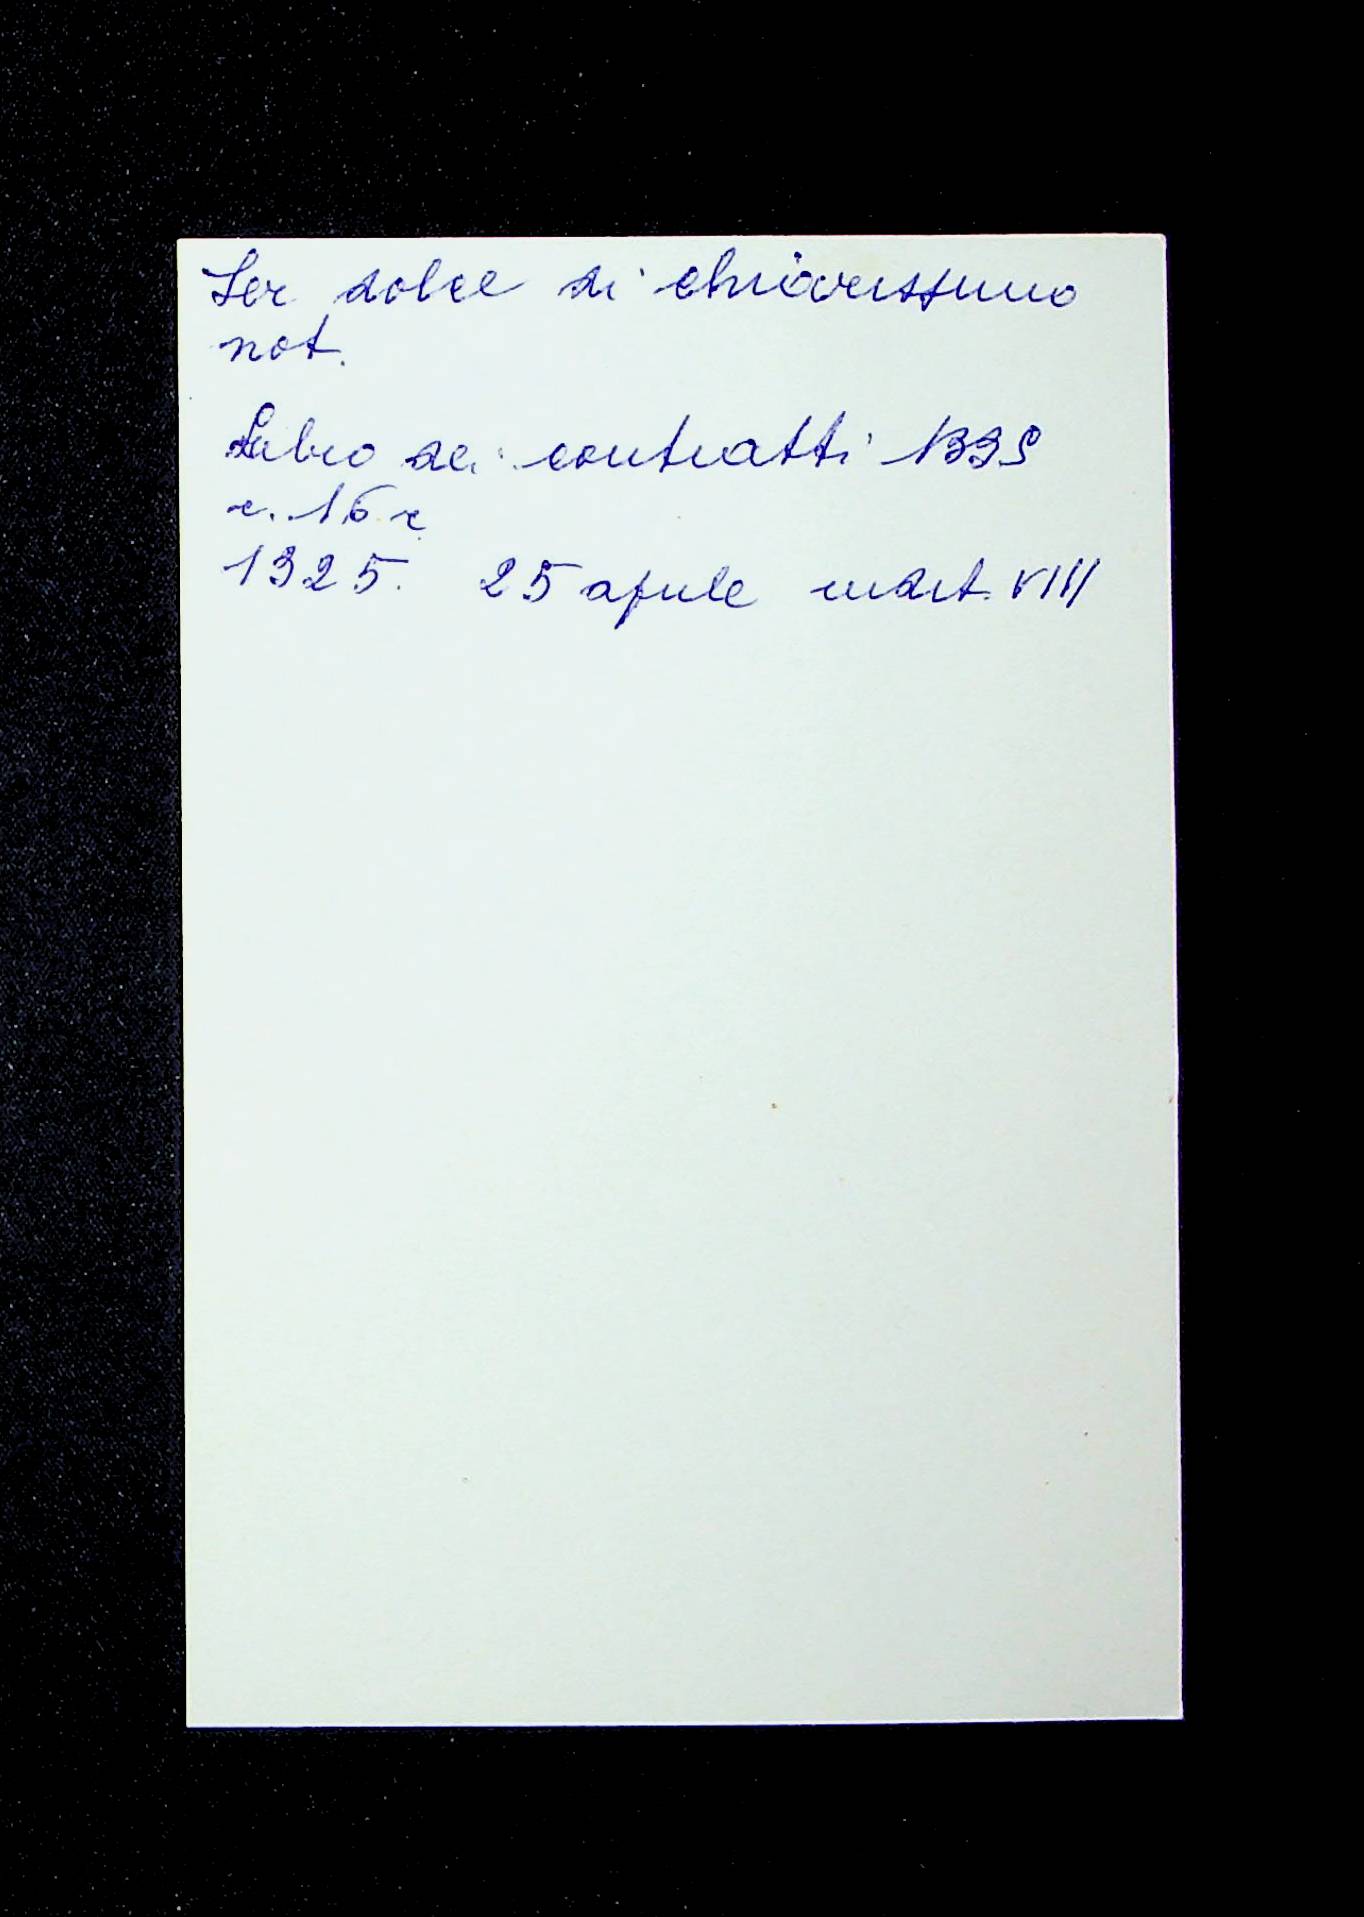 Ser dolce di chiarissimo
not.
Libro dei contratti 1339
c. 16 r
1325. 25 aprile indict. VIII